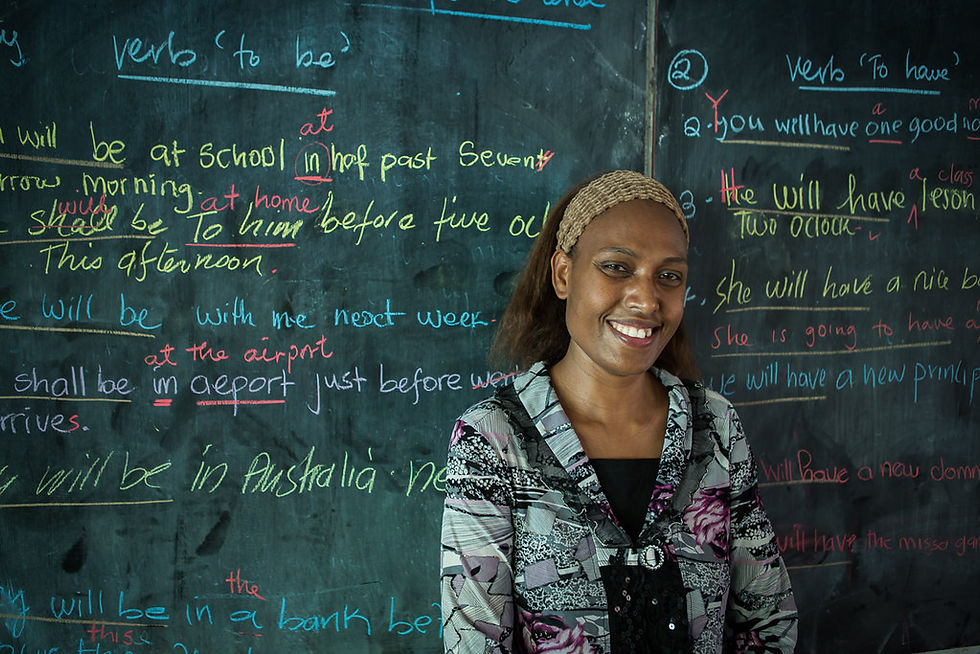 verb 'to be'
will be at school in haf past Seventy
at
morning.
shall be To him before five
will at home
This afternoon.
will be with me next week.
at the airport
shall be in aeport just before
rrives.
will be in Australia.
the
will be in a bank be
this
② verb 'To have'
a
2. you will have one good
Y
a class
He will have leson
Two oclock
she will have a nice
she is going to have a
we will have a new
will have a new
will have the missa